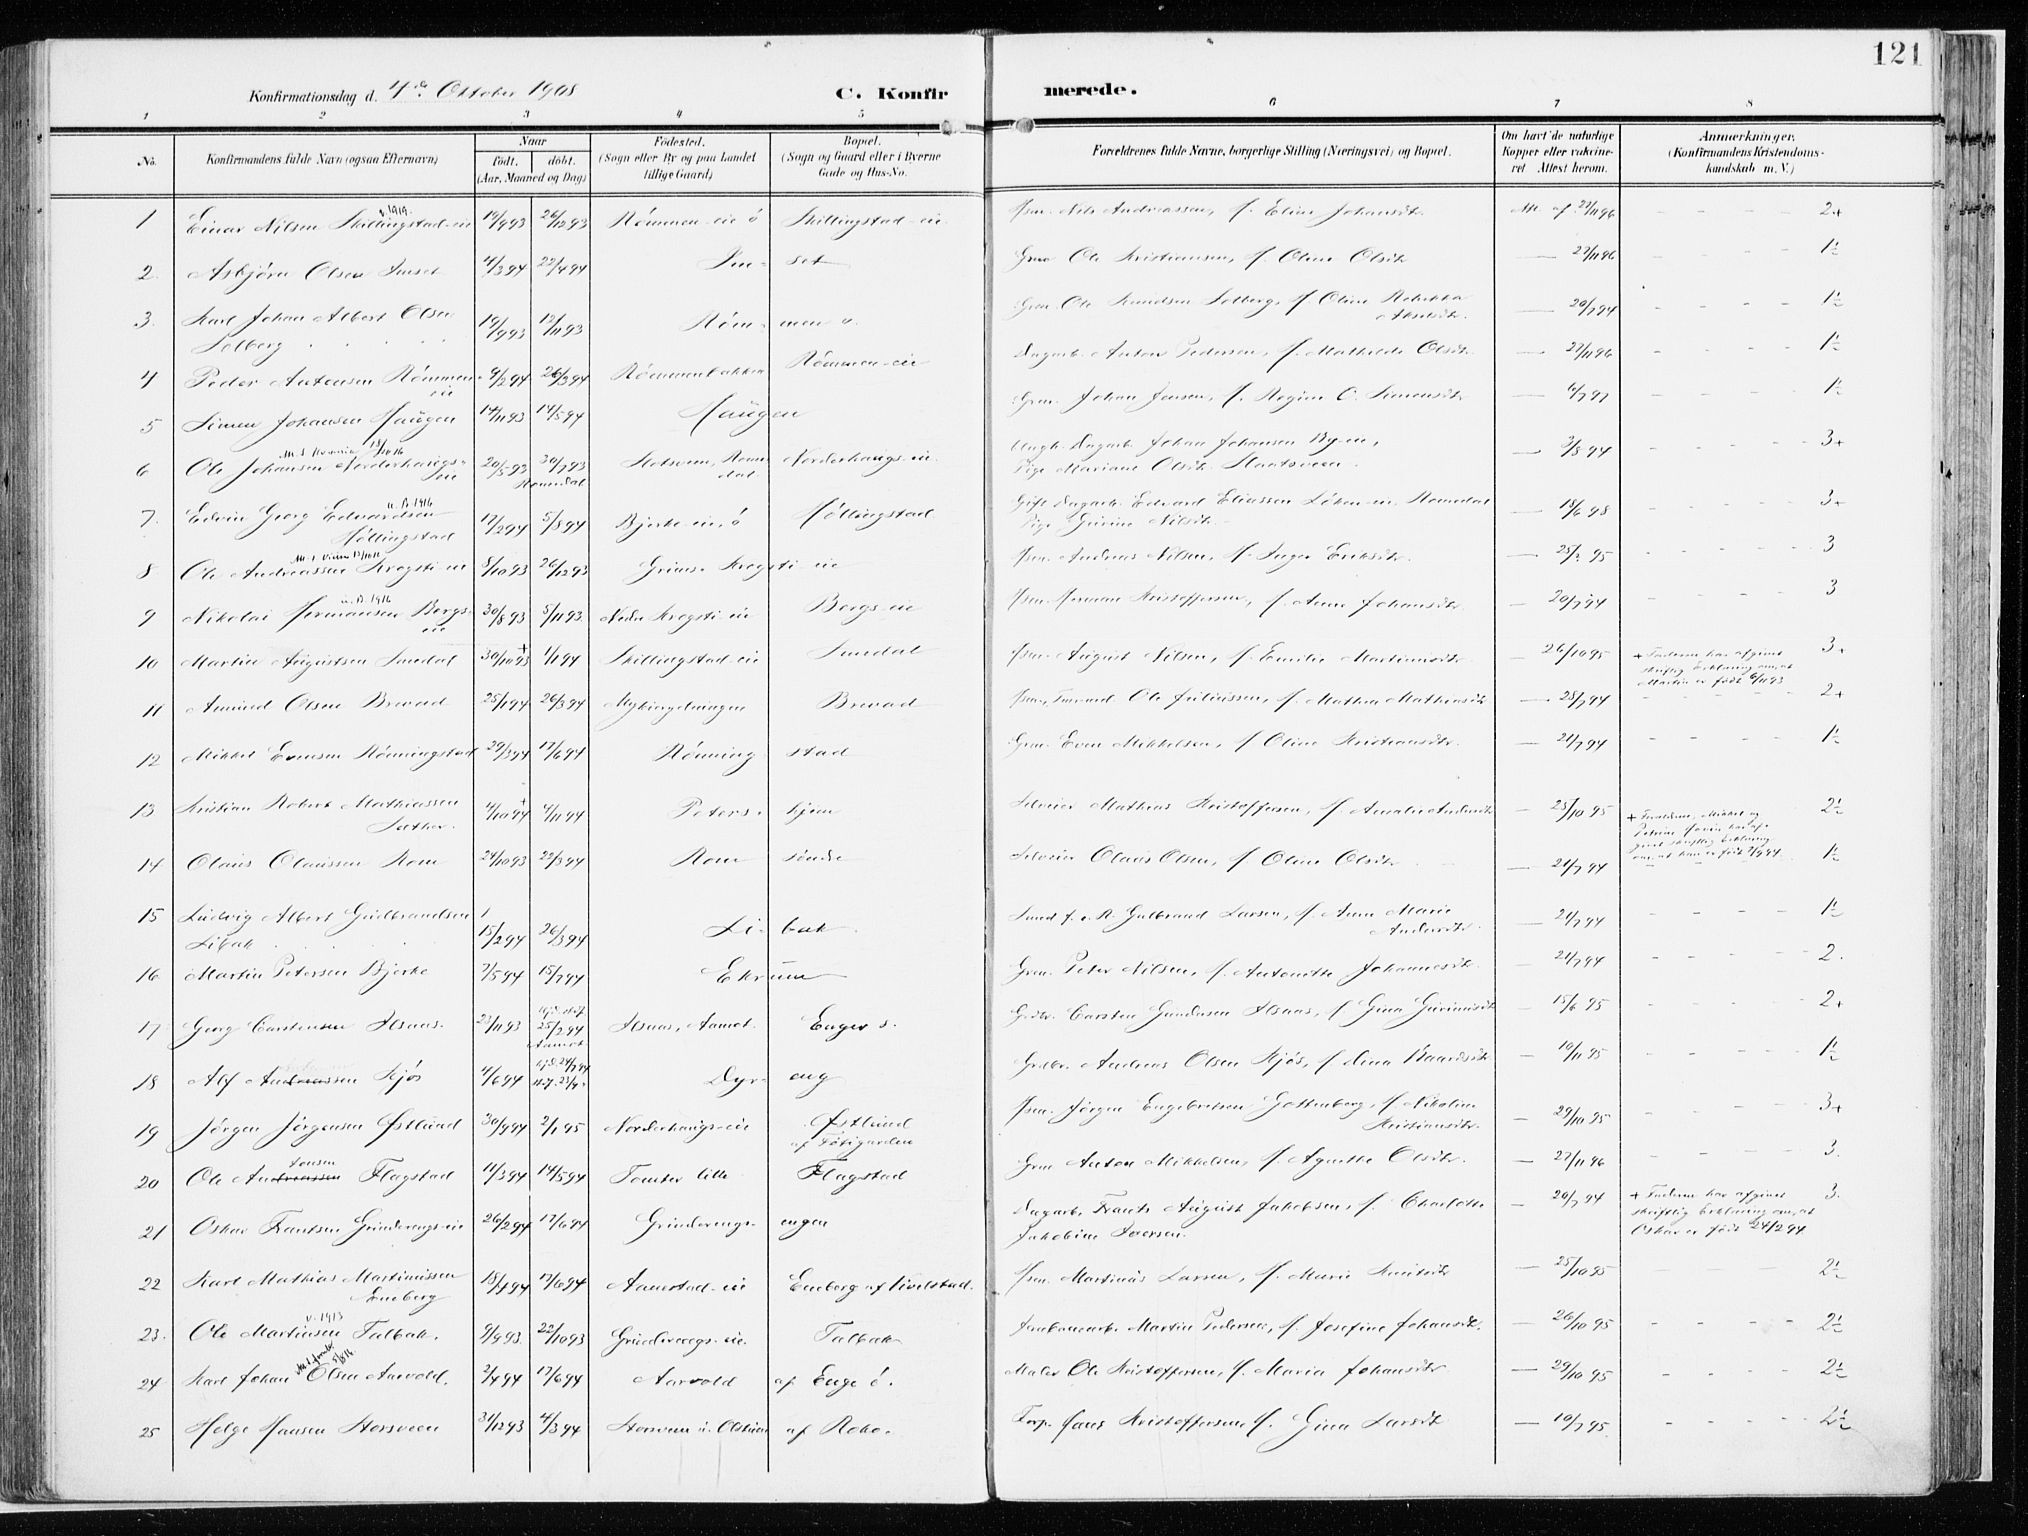 121
Konfirmationsdag d. 4de Oktober 1908
C. Konfirmerede.
1 2 3 4 5 6 7 8
No. Konfirmandens fulde Navn (ogsaa Efternavn) Naar født. døbt. (Aar, Maaned og Dag) Fødested. (Sogn eller By og paa Landet tillige Gaard) Bopæl. (Sogn og Gaard eller i Byerne Gade og Hus-No. Forældrenes fulde Navne, borgerlige Stilling (Næringsvei) og Bopæl. Om havt de naturlige Kopper eller vakcineret. Attest herom. Anmærkninger. (Konfirmandens Kristendomskundskab m. V.)
1 Einar Nilsen Skillingstad-eie 19/9 93 26/12 93 Rømmen-eie ø Skillingstad-eie Nils Andreassen, Eline Johansdtr. Att. af 27/11 96 2+
v. 1919.
2. Asbjørn Olsen Imset 4/3 94 22/4 94 Imset Grm. Ole Kristiansen, Oline Olsdtr. 27/11 96 1½
3. Karl Johan Albert Olsen Solberg 19/9 93 12/11 93 Rømmen ø. Grm. Ole Knudsen Solberg, Oline Rebekka 20/7 94 1½
4 Peder Antonsen Rømmen-eie 9/2 94 26/3 94 Rømmenbakken Rømmen-eie Dagarb. Anton Pedersen, Mathilde Olsdtr. 27/11 96 1½
5 Simen Johansen Haugen 14/11 93 14/5 94 Haugen Grm. Johan Jensen, Regine O. Simensdtr. 6/7 97 1½
6 Ole Johansen Norderhaugs-eie 20/5 93 30/7 93 Romedal Norderhaugs-eie. Ungk. Dagarb. Johan Johansen By-eie, Pige Mariane Olsdtr. Slaatsveen. 3/8 94 3+
7. Edvin Georg Edvardsen Høllingstad 17/2 94 5/8 94 Bjerke-eie, ø Høllingstad Gift Dagarb. Edvard Eliassen Løken-eie, Romedal Pige Gurine Nilsdtr. 18/6 98 3+
u. B. 1916
8 Ole Andreassen Kregsti-eie 8/10 93 26/12 93 Grims. Kregsti-eie Andreas Nilsen, Inger Eriksdtr. 25/2 95 3
9 Nikolai Hermansen Bergs-eie 30/8 93 5/11 93. Nedre Kregsti-eie Bergs-eie Herman Kristoffersen, Anne Johansdtr. 20/7 94 3
u. B. 1916
10 Martin Augustsen Sundal 30/10 93 + 1/1 94 Skillingstad-eie Sundal August Nilsen, Emilie Martinusdtr. 26/10 95 + Faderen har afgivet skriftlig Erklæring om, at Martin er født 6/11 93 3+
11 Amund Olsen Brevad 25/1 94 26/3 94 Brevad Ole Juliussen, Mathea Mathiasdtr. 28/7 94 2+
12 Mikkel Evensen Rønningstad 29/3 94 17/6 94 Rønningstad Grm. Even Mikkelsen, Oline Kristiansdtr. 21/7 94 1½
13 Kristian Robert Mathiassen Sæther. 4/10 94 + 4/11 94 Petershjem Selveier Mathias Kristoffersen, Amalie Andersdtr. 25/10 95 + Forældrene, Mikkel og Petrine har afgivet skriftlig Erklæring om, at han er født 7/9 94. 2½
14 Olaus Olaussen Rom 24/10 93 22/3 94 Rom søndre Selveier Olaus Olsen, Oline Olsdtr. 21/7 94 1½
15 Ludvig Albert Gudbrandsen Libak 15/2 94 26/3 94 Libak. Gulbrand Larsen, Anne Marie Andersdtr. 21/7 94 1½
16 Martin Petersen Bjerke 7/5 94 15/7 94 Ekrum Grm. Peter Nilsen, Antonette Johannesdtr. 21/7 94 2.
17 Georg Carstensen Ilsaas. 23/11 93 25/2 94 Aamot Ilsaas, Aamot. Enger s. Grdbr. Carsten Gundersen Ilsaas, Gina Gurinusdtr. 15/6 95 2+
18 Alf Andreassen Kjøs 4/6 94 Dyreng Grdbr. Andreas Olsen Kjøs, Lina Baardsdtr. 19/11 95 1½
19 Jørgen Jørgensen Østlund 30/9 94 2/1 95 Norderhaugs-eie Østlund Jørgen Engebretsen Gottenberg, Nikoline Kristiansdtr. 29/10 95 3+
20 Ole Andreassen tonsen Flagstad 11/3 94 14/5 94 Tomter lille Flagstad Grm. Anton Mikkelsen, Agnethe Olsdtr. 27/11 96 3.
21 Oskar Frantsen Grinderengs-eie 26/2 94 17/6 94 Grinderengs-engen Dagarb. Frants August Jakobsen, Charlotte Jakobine Iversen. 20/7 94 + Faderen har afgivet skriftlig Erklæring om, at Oskar er født 24/2 94 3.
22 Karl Mathias Martinussen Eneberg 18/4 94 17/6 94 Aamstad-eie Eneberg af Tivelstad. Martinus Larsen, Marie Knutsdtr. 25/10 95 2½
23. Ole Martinsen Talbak. 9/9 93. 22/10 93 Grinderengs-eie. Talbak Jernbanearb. Martin Pedersen, Josefine Johansdtr. 26/10 95 2½
v. 1913
24 Karl Johan Olsen Aarvold. 2/4 94 17/6 94 Aarvold af Enge ø. Maler Ole Kristoffersen, Maria Johansdtr. 29/10 95 2½
25 Helge Hansen Storsveen 31/12 93 4/3 94 Storsveen u. Olstuen af Roko. Torp. Hans Kristoffersen Gina Larsdtr. 19/7 95 2½